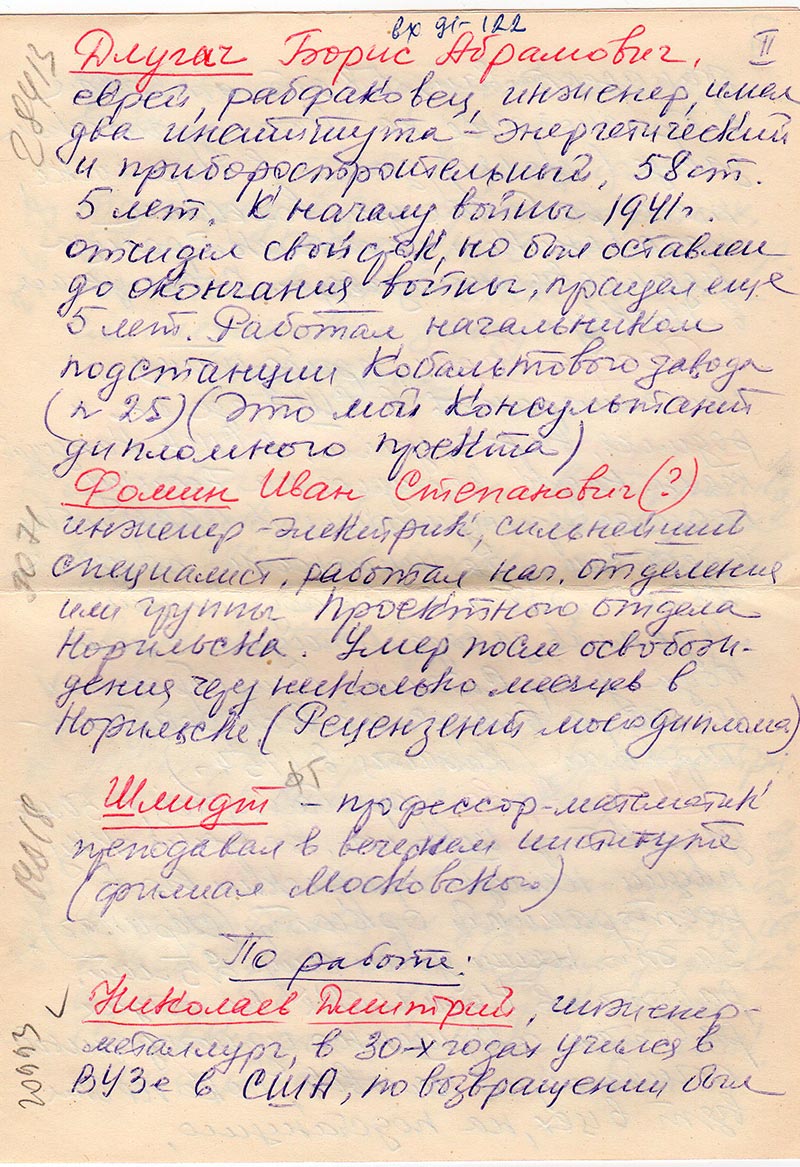 вх 91-122
II
Длугач Борис Абрамович,
еврей, рабфаковец, инженер, имел
два института - энергетический
и приборостроительный, 58 ст.
5 лет. К началу войны 1941 г.
отсидел свой срок, но был оставлен
до окончания войны, просидел еще
5 лет. Работал начальником
подстанции Кобальтового завода
(п 25) (это мой консультант
дипломного проекта)
Фомин Иван Степанович (?)
инженер-электрик, сильнейший
специалист, работал нач. отделения
или группы Проектного отдела
Норильска. Умер после освобож-
дения через несколько месяцев в
Норильске. (Рецензент моего диплома)
Шмидт ФГ - профессор-математик
преподавал в вечернем институте
(филиал Московского)
По работе:
Николаев Дмитрий, инженер-
металлург, в 30-х годах учился в
ВУЗе в США, по возвращении был
28413
20993